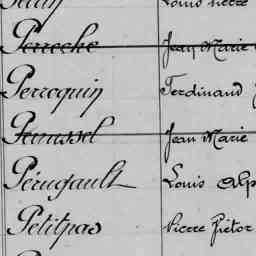 Louis Pierre
Perroche Jean Marie
Perroquin Ferdinand
Perussel Jean Marie
Pérugault Louis Alp
Petitpas Pierre Victor